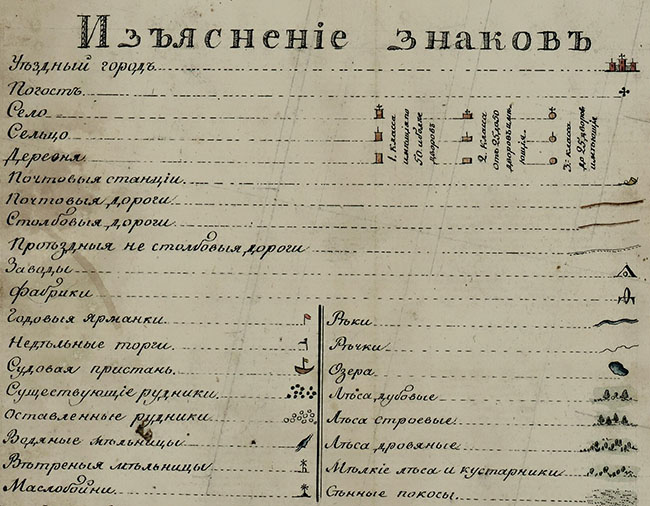 Изъясненіе знаковъ
Уѣздный городъ
Погостъ
Село
Сельцо
Деревня
1. класса имѣющія по 50 и болѣе дворовъ
2. класса отъ 25 до 50 дворовъ имѣющія.
3. класса до 25 дворовъ имѣющія
Почтовыя станціи
Почтовыя дороги
Столбовыя дороги
Проѣздныя не столбовыя дороги
Заводы
Фабрики
Годовыя ярманки.
Недѣльные торги.
Судовая пристань.
Существующіе рудники.
Оставленные рудники.
Водяные мѣльницы
Вѣтреныя мѣльницы
Маслобойни
Рѣки
Рѣчки.
Озера.
Лѣса дубовые
Лѣса строевые.
Лѣса дровяные.
Мѣлкіе лѣса и кустарники
Сѣнные покосы.